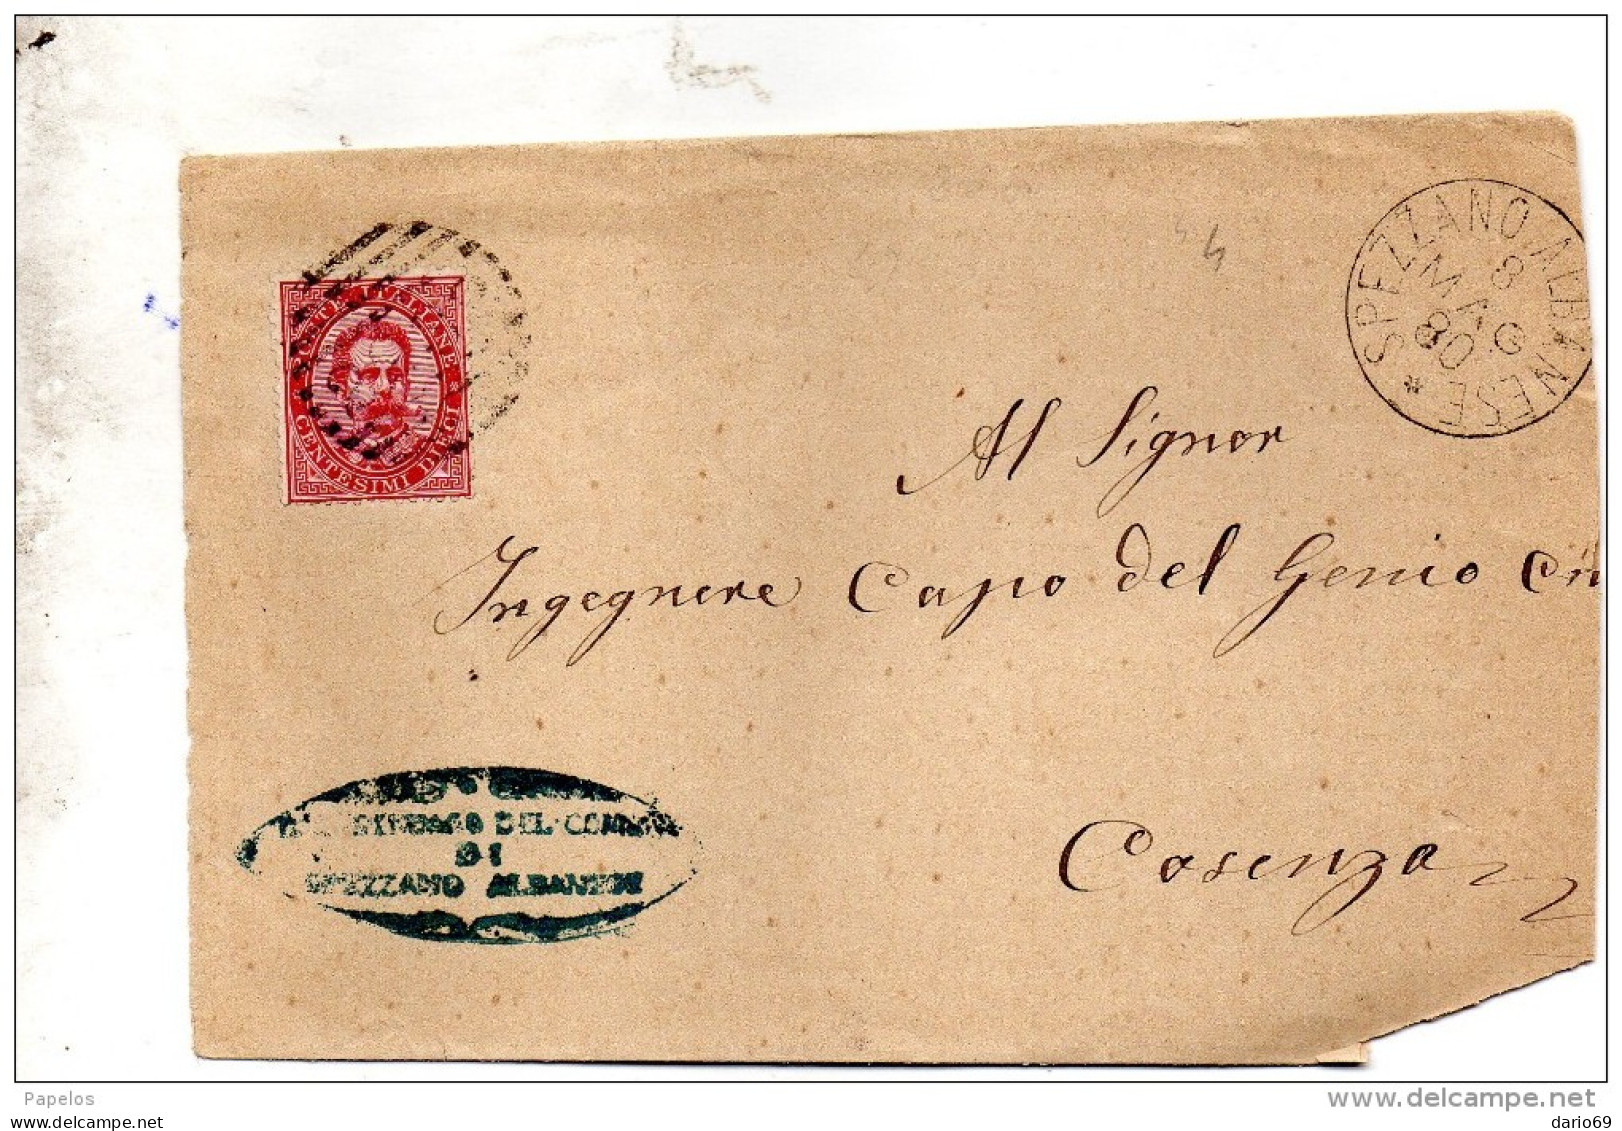 POSTE ITALIANE * CENTESIMI DIECI
SPEZZANO ALBANESE *
8
MAG
80
44
Al Signor
Ingegnere Capo del Genio Civ
Cosenza
SINDACO DEL COMUNE
DI
SPEZZANO ALBANESE
Papelos
www.delcampe.net
dario69